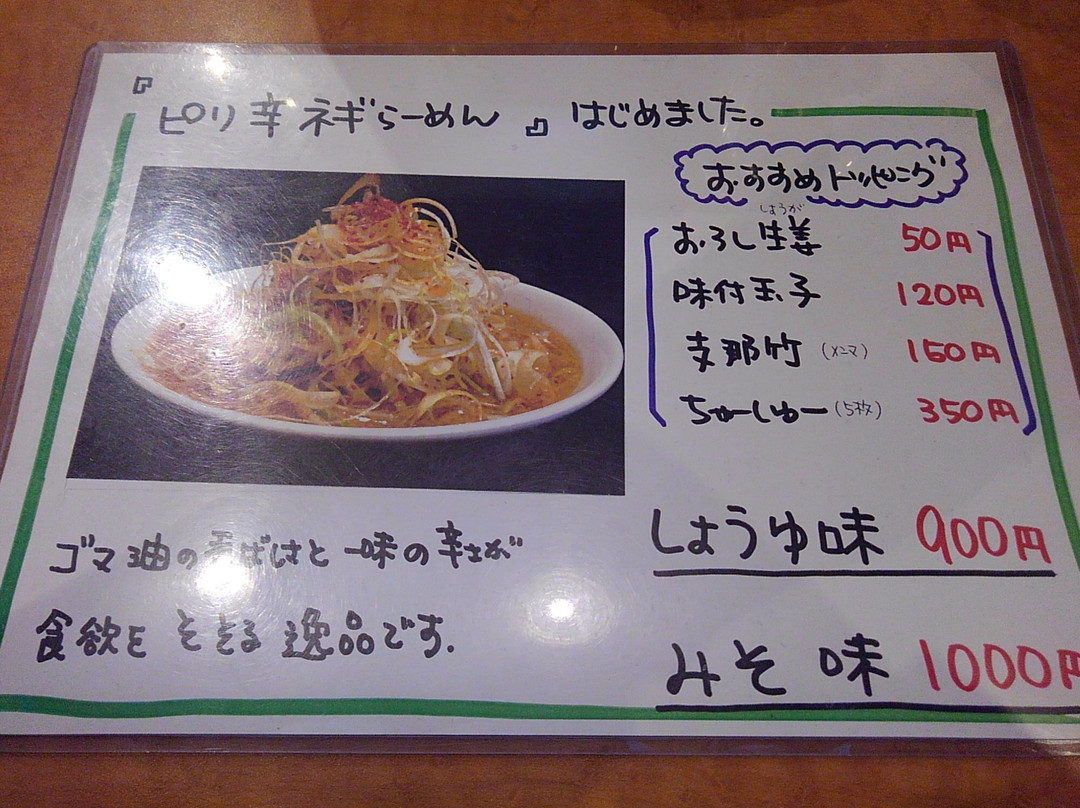 『ピリ辛ネギらーめん』はじめました。
おすすめトッピング
しょうが
おろし生姜 50円
味付玉子 120円
支那竹(メンマ) 150円
ちゃーしゅー(5枚) 350円
しょうゆ味 900円
みそ味 1000円
ゴマ油の香ばしさと一味の辛さが
食欲をそそる逸品です.